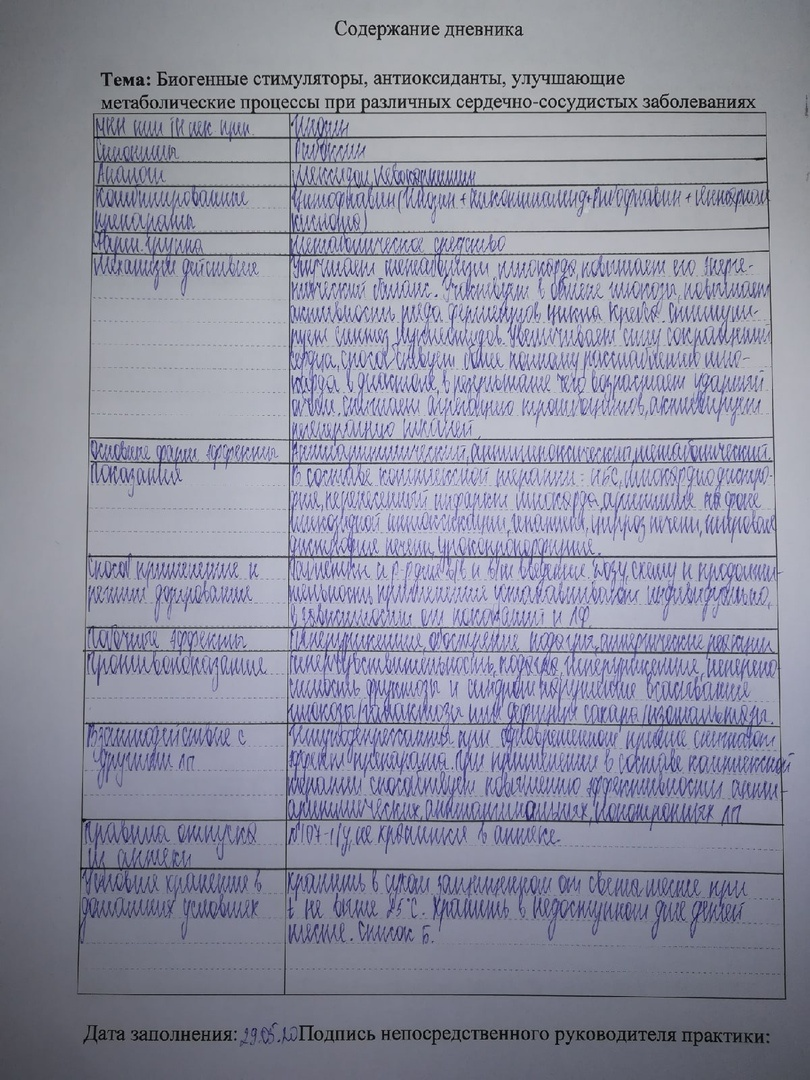 Содержание дневника
Тема: Биогенные стимуляторы, антиоксиданты, улучшающие
метаболические процессы при различных сердечно-сосудистых заболеваниях
МНН или ТН лек. преп. Инозин
Синонимы Рибоксин
Аналоги Мексидол, Левокарнитин
Комбинированные Цитофлавин (Инозин + Никотинамид + Рибофлавин + Янтарная
препараты кислота)
Фарм. группа Метаболическое средство
Механизм действие Улучшает метаболизм миокарда, повышает его энерге-
тический баланс. Участвует в обмене глюкозы, повышает
активность ряда ферментов цикла Кребса. Стимули-
рует синтез нуклеотидов. Увеличивает силу сокращений
сердца, способствует более полному расслаблению мио-
карда в диастоле, в результате чего возрастает ударный
объём, снижает агрегацию тромбоцитов, активирует
регенерацию тканей.
Основные фарм. эффекты Антиаритмический, антигипоксический, метаболический.
Показания В составе комплексной терапии: ИБС, миокардиодистро-
фия, перенесенный инфаркт миокарда, аритмия на фоне
гликозидной интоксикации, гепатит, цирроз печени, жировая
дистрофия печени, урокопропорфирия.
Способ применение и Таблетки и р-р для в/в и в/м введение. Дозу, схему и продолжи-
режим дозирование тельность применения устанавливают индивидуально,
в зависимости от показаний и ЛФ.
Побочные эффекты Гиперурикемия, обострение подагры, аллергические реакции
Противопоказание Гиперчувствительность, подагра, гиперурикемия, неперено-
симость фруктозы и синдром нарушение всасывания
глюкозы/галактозы или дефицит сахаразы/изомальтазы.
Взаимодействие с Иммунодепрессанты при одновременном приёме снижают
другими лп эффект препарата. При применении в составе комплексной
терапии способствует повышению эффективности анти-
аритмических, антиангинальных, инотропных лп
Правила отпуска №107-1/у, не хранится в аптеке.
из аптеки
Условие хранение в Хранить в сухом защищенном от света месте при
домашних условиях t не выше 25°С. Хранить в недоступном для детей
месте. Список Б.
Дата заполнения: 29.05.20 Подпись непосредственного руководителя практики: